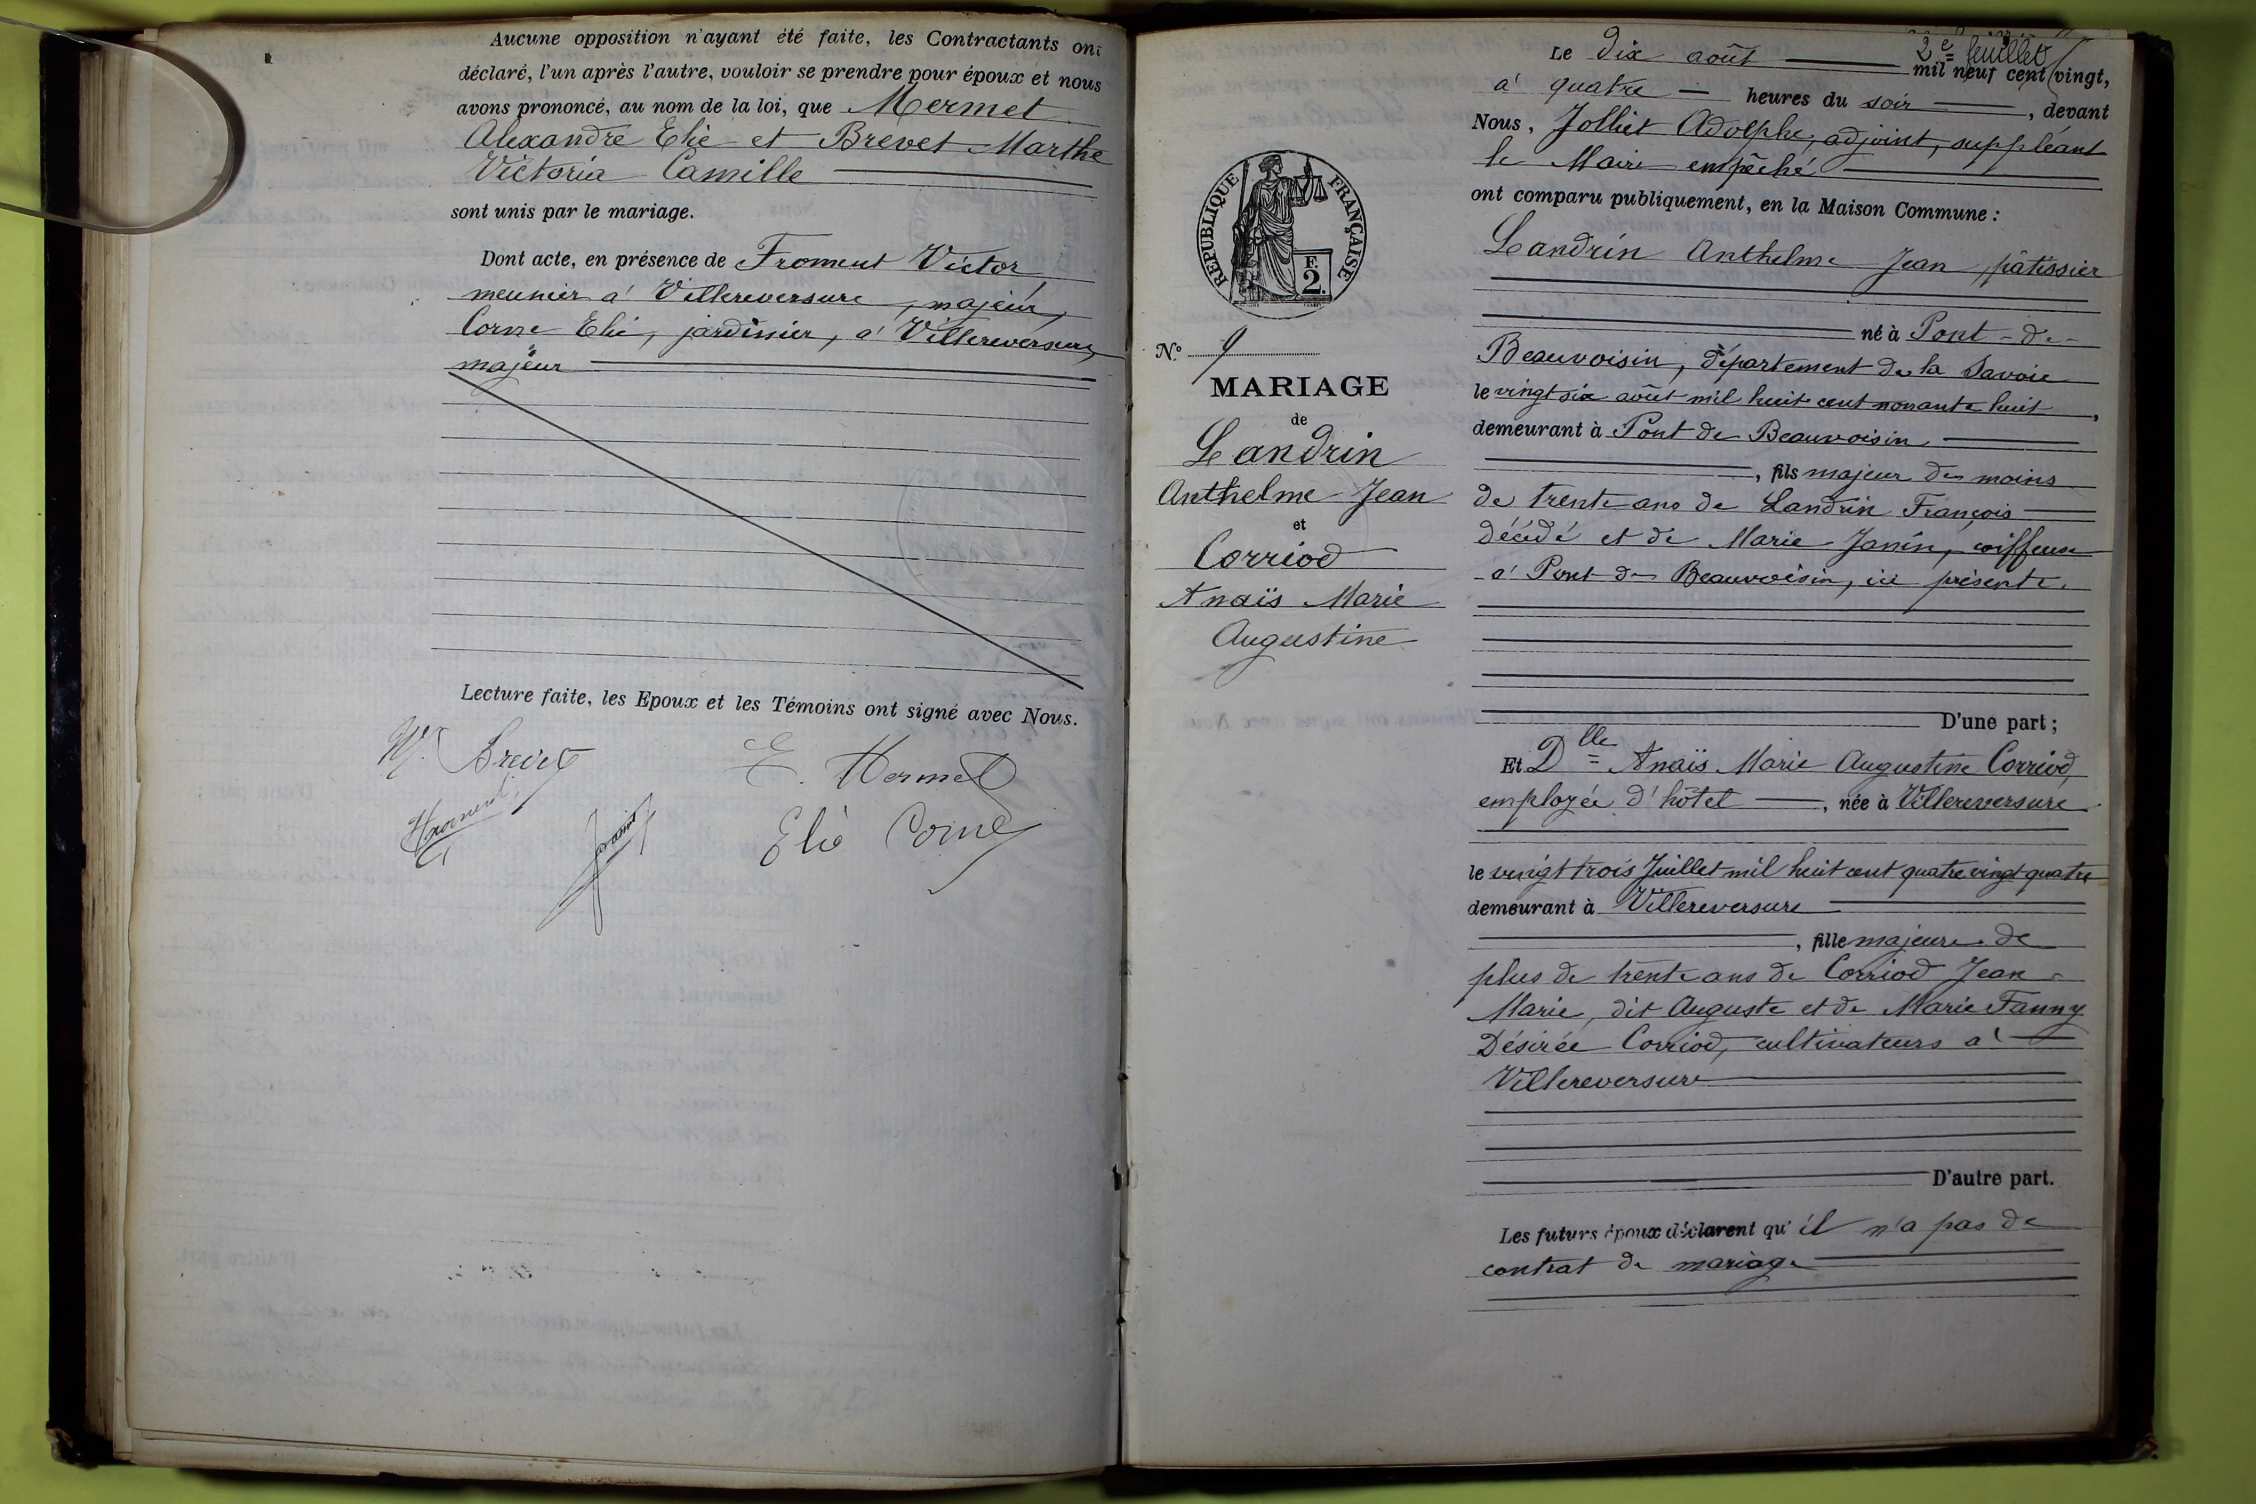 Aucune opposition n'ayant été faite, les Contractants ont
déclaré, l'un après l'autre, vouloir se prendre pour époux et nous
avons prononcé, au nom de la loi, que Mermet
Alexandre Elie et Brevet Marthe
Victoria Camille
sont unis par le mariage.
Dont acte, en présence de Froment Victor
meunier à Villereversure, majeur,
Corne Elie, jardinier, à Villereversure,
majeur
Lecture faite, les Epoux et les Témoins ont signé avec Nous.
M. Brevet
E. Mermet
Froment
Elie Corne
2e feuillet
Le dix août mil neuf cent vingt,
à quatre heures du soir, devant
Nous, Jolliet Adolphe, adjoint, suppléant
le Maire empêché
ont comparu publiquement, en la Maison Commune :
Landrin Anthelme Jean, pâtissier
né à Pont-de-
Beauvoisin, département de la Savoie
le vingt six août mil huit cent nonante huit,
demeurant à Pont de Beauvoisin
, fils majeur de moins
de trente ans de Landrin François
décédé et de Marie Janin, coiffeuse
à Pont de Beauvoisin, ici présente.
D'une part ;
Et Dlle Anaïs Marie Augustine Corriod,
employée d'hôtel, née à Villereversure
le vingt trois Juillet mil huit cent quatre vingt quatre
demeurant à Villereversure
, fille majeure de
plus de trente ans de Corriod Jean
Marie, dit Auguste et de Marie Fanny
Désirée Corriod, cultivateurs à
Villereversure
D'autre part.
Les futurs époux déclarent qu'il n'a pas de
contrat de mariage
RÉPUBLIQUE FRANÇAISE
F.
2.
N° 9
MARIAGE
de
Landrin
Anthelme Jean
et
Corriod
Anaïs Marie
Augustine